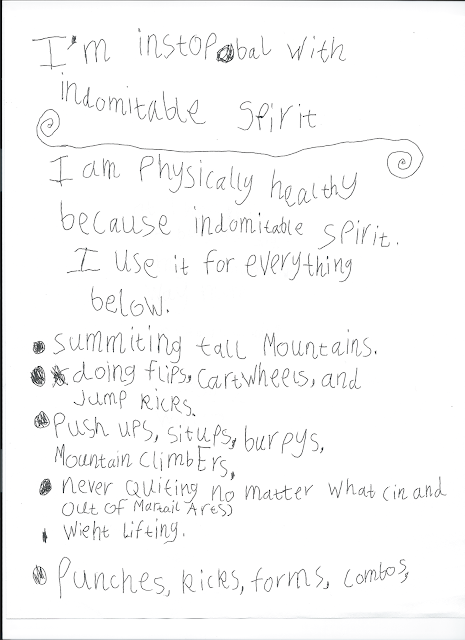 I'm instopabal with
indomitable Spirit
I am Physically healthy
because indomitable spirit.
I use it for everything
below.
summiting tall Mountains.
doing flips, cartwheels, and
Jump kicks.
Push ups, situps, burpys,
Mountain climbErs,
never Quiting no matter what (in and
out of Martail Ares)
Wieht Lifting.
Punches, kicks, forms, combos,